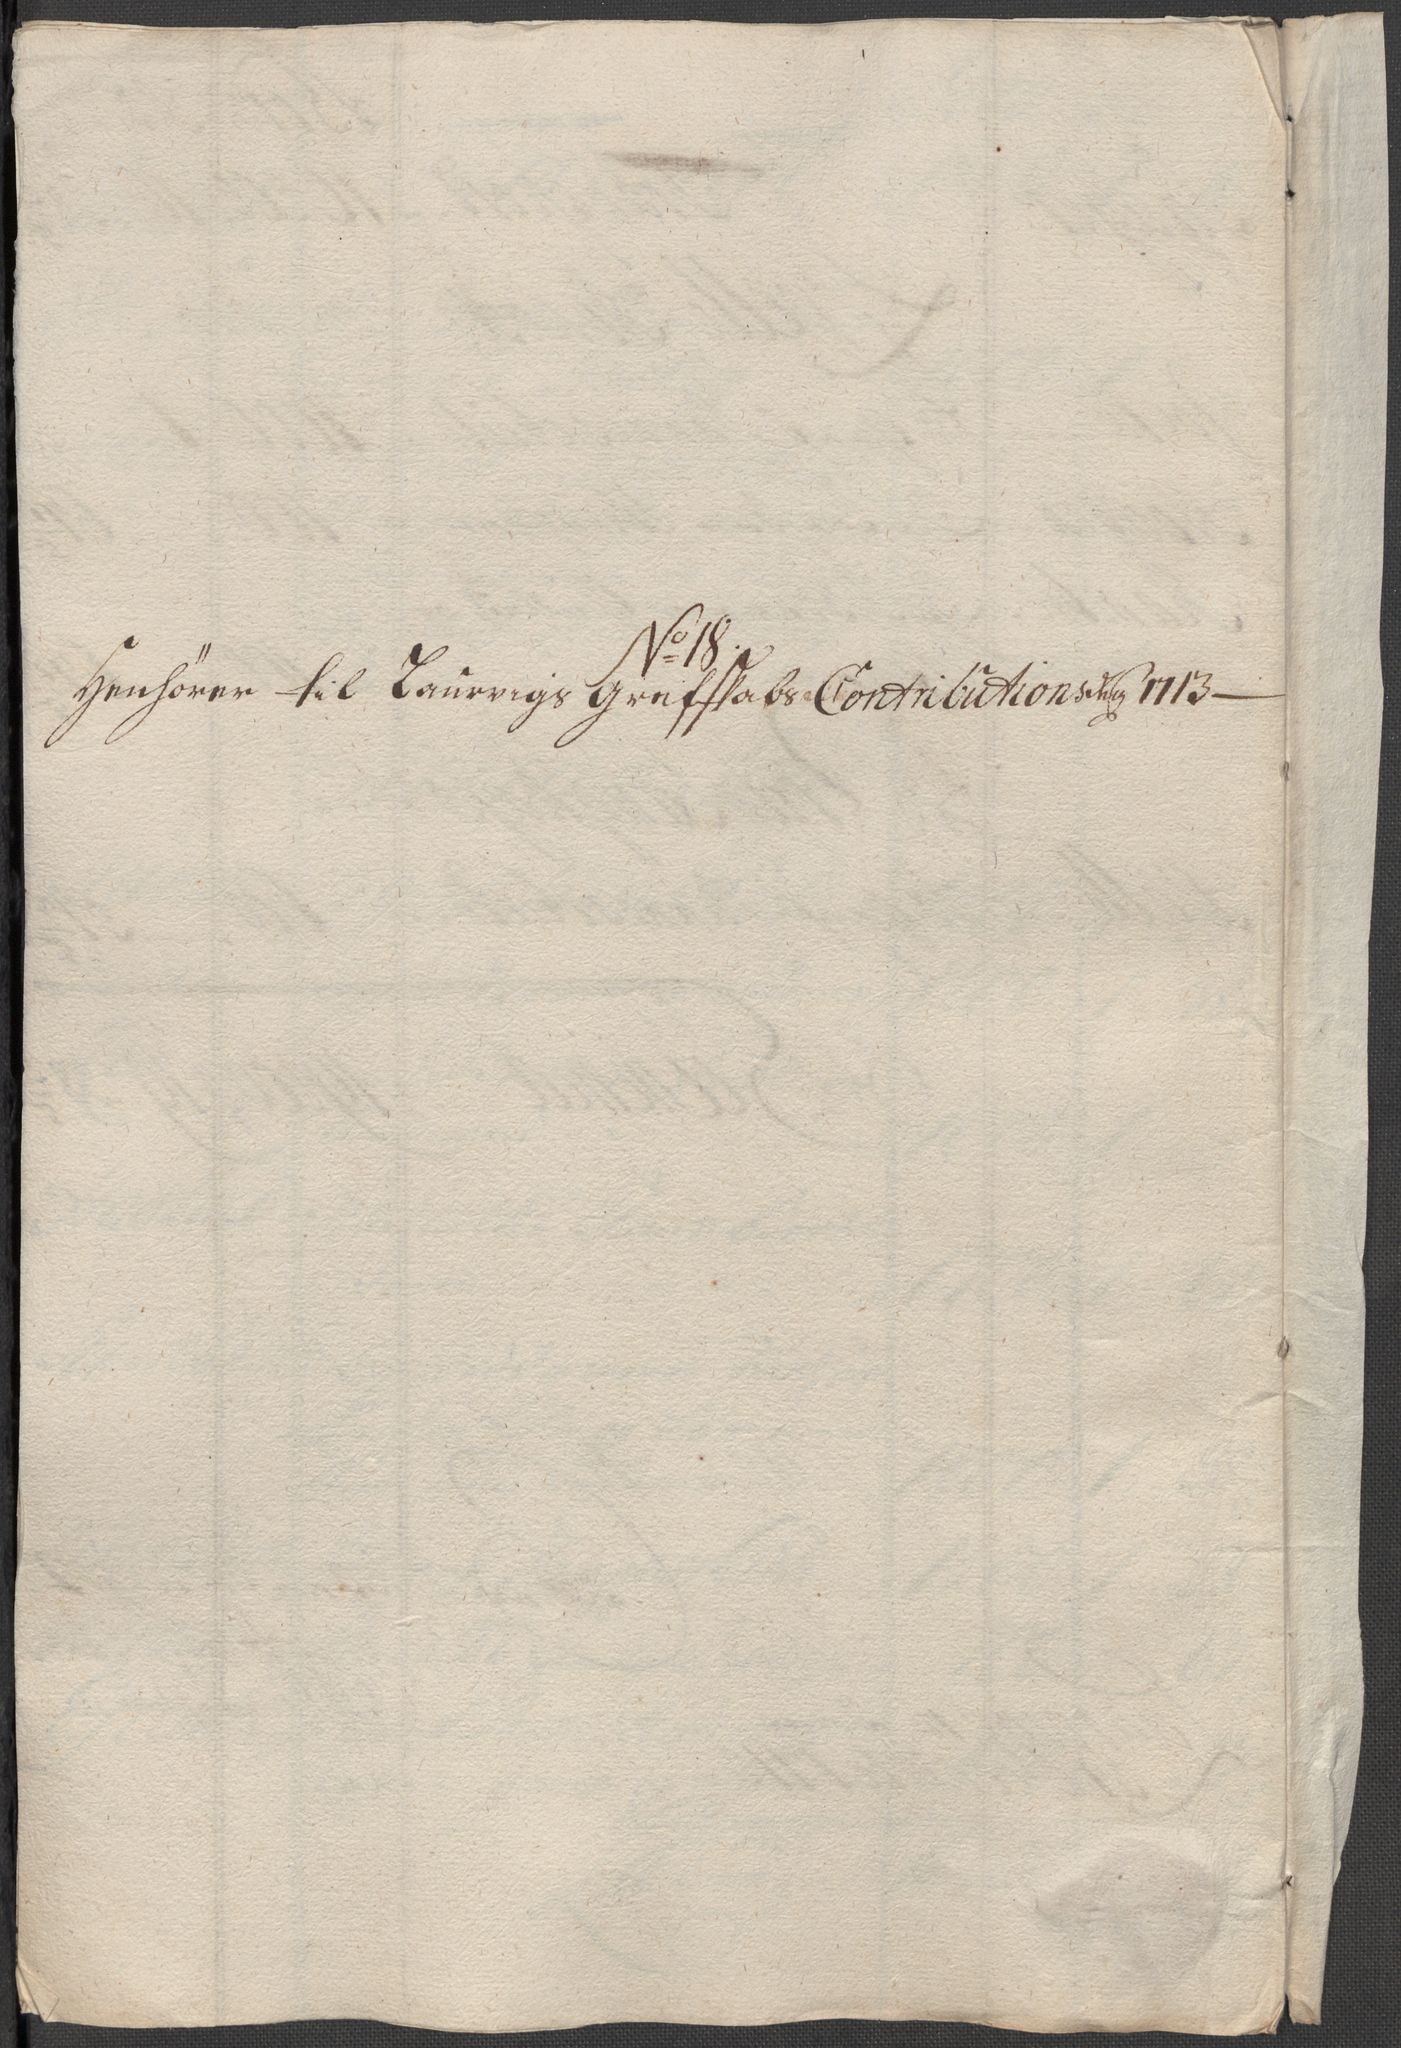 No 18.
Henhörer til Laurvigs Grefskabs Contributions 1713